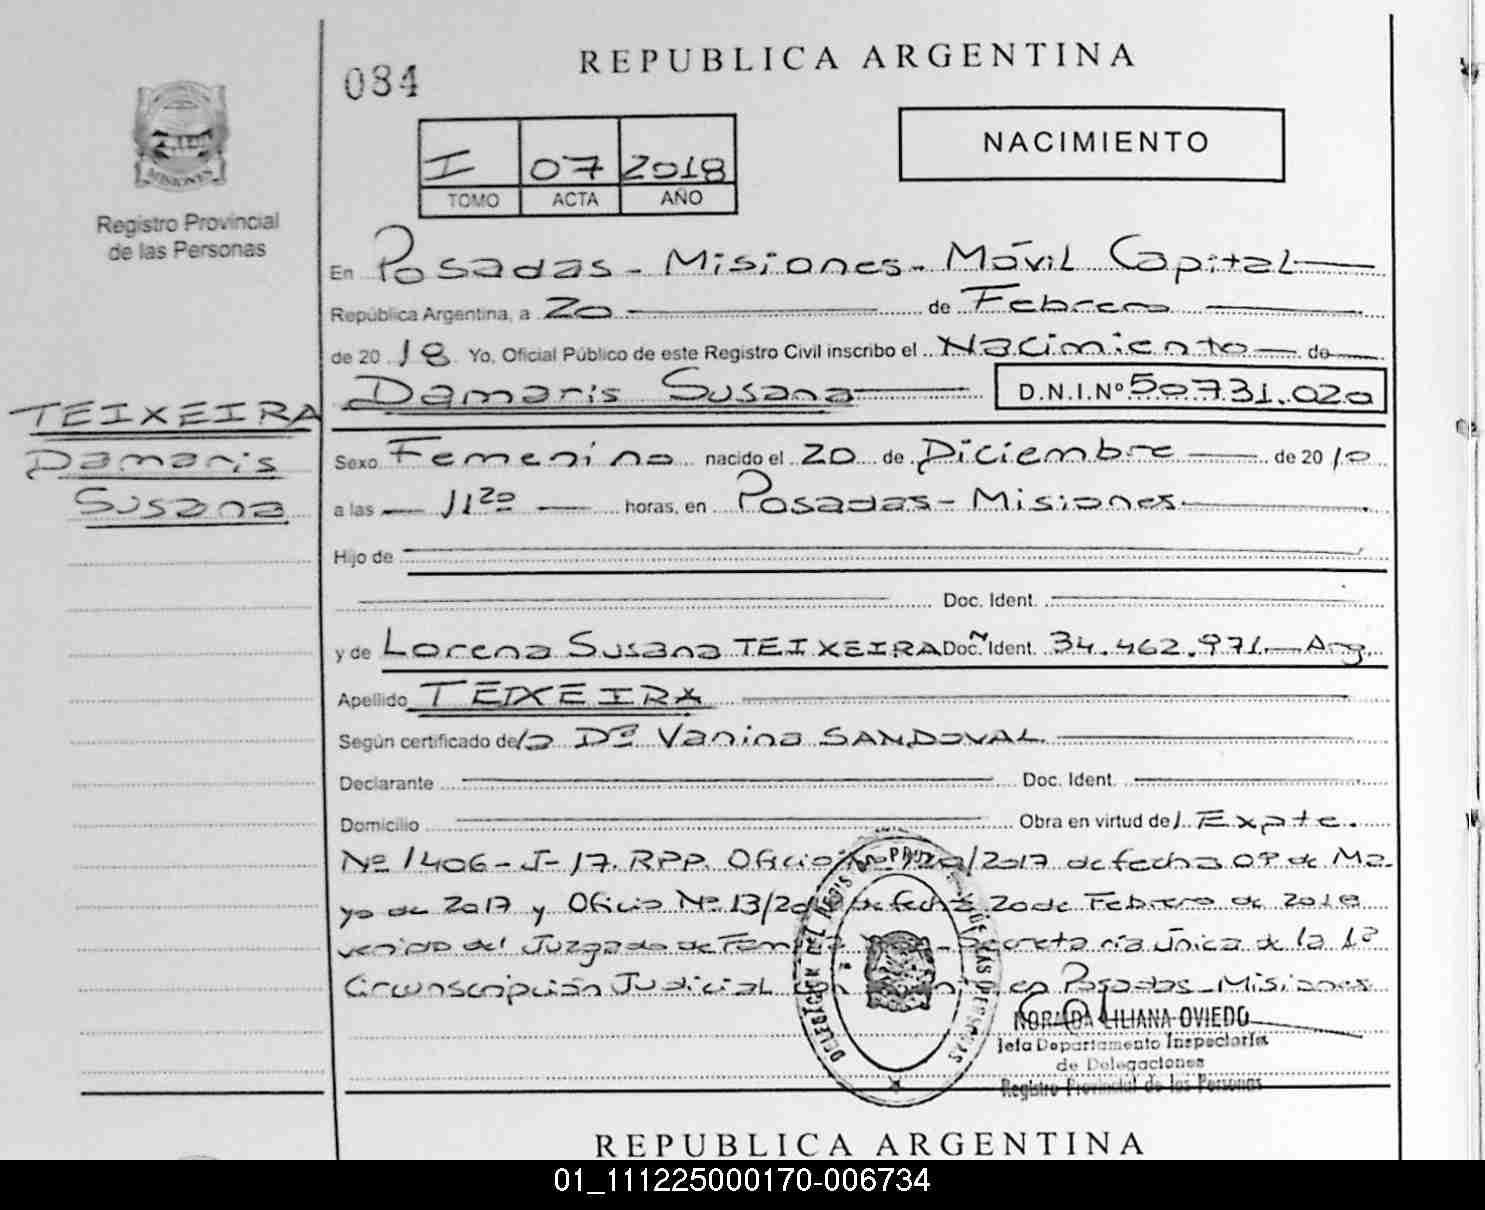 REPUBLICA ARGENTINA
084
NACIMIENTO
I 07 2018
TOMO ACTA AÑO
MISIONES
Registro Provincial
de las Personas
En Posadas - Misiones - Móvil Capital
República Argentina, a 20 de Febrero
de 20 18 Yo, Oficial Público de este Registro Civil inscribo el Nacimiento de
Damaris Susana D.N.I.Nº 50.731.020
TEIXEIRA
Damaris
Susana
Sexo Femenino nacido el 20 de Diciembre de 20 10
a las 11 20 horas, en Posadas - Misiones
Hijo de
Doc. Ident.
y de Lorena Susana TEIXEIRA Doc. Ident. 34.462.971 - Arg.
Apellido TEIXEIRA
Según certificado de la Dra Vanina SANDOVAL
Declarante Doc. Ident.
Domicilio Obra en virtud del Expte.
Nº 1406-J-17. RPP. Oficio /2017 de fecha 09 de Ma-
yo de 2017 y Oficio Nº 13/2018 de fecha 20 de Febrero de 2018
venido del Juzgado de Familia Secretaría Única de la 1ª
Circunscripción Judicial con en Posadas - Misiones
DELEGACIÓN DE LAS PERSONAS
NORA LILIANA OVIEDO
Jefa Departamento Inspectoría
de Delegaciones
Registro Provincial de las Personas
REPUBLICA ARGENTINA
01_111225000170-006734